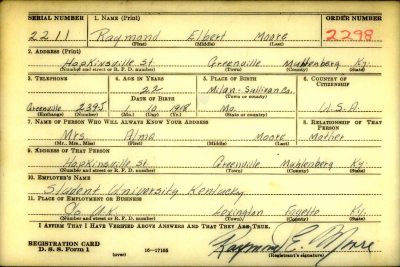 SERIAL NUMBER 1. NAME (Print) ORDER NUMBER
2211 Raymond Elbert Moore 2298
(First) (Middle) (Last)
2. ADDRESS (Print)
Hopkinsville St. Greenville Muhlenberg Ky.
(Number and street or R. F. D. number) (Town) (County) (State)
3. TELEPHONE 4. AGE IN YEARS 5. PLACE OF BIRTH 6. COUNTRY OF CITIZENSHIP
22 Milan-Sullivan Co.
DATE OF BIRTH (Town or county)
Greenville 239J 1 10 1918 Mo. U.S.A.
(Exchange) (Number) (Mo.) (Day) (Yr.) (State or country)
7. NAME OF PERSON WHO WILL ALWAYS KNOW YOUR ADDRESS 8. RELATIONSHIP OF THAT PERSON
Mrs. Alma Moore Mother
(Mr., Mrs., Miss) (First) (Middle) (Last)
9. ADDRESS OF THAT PERSON
Hopkinsville St. Greenville Muhlenberg Ky.
(Number and street or R. F. D. number) (Town) (County) (State)
10. EMPLOYER'S NAME
Student University Kentucky
11. PLACE OF EMPLOYMENT OR BUSINESS
U.K. Lexington Fayette Ky.
(Number and street or R. F. D. number) (Town) (County) (State)
I AFFIRM THAT I HAVE VERIFIED ABOVE ANSWERS AND THAT THEY ARE TRUE.
REGISTRATION CARD
D. S. S. Form 1 16-17105 Raymond E. Moore
(over) (Registrant's signature)